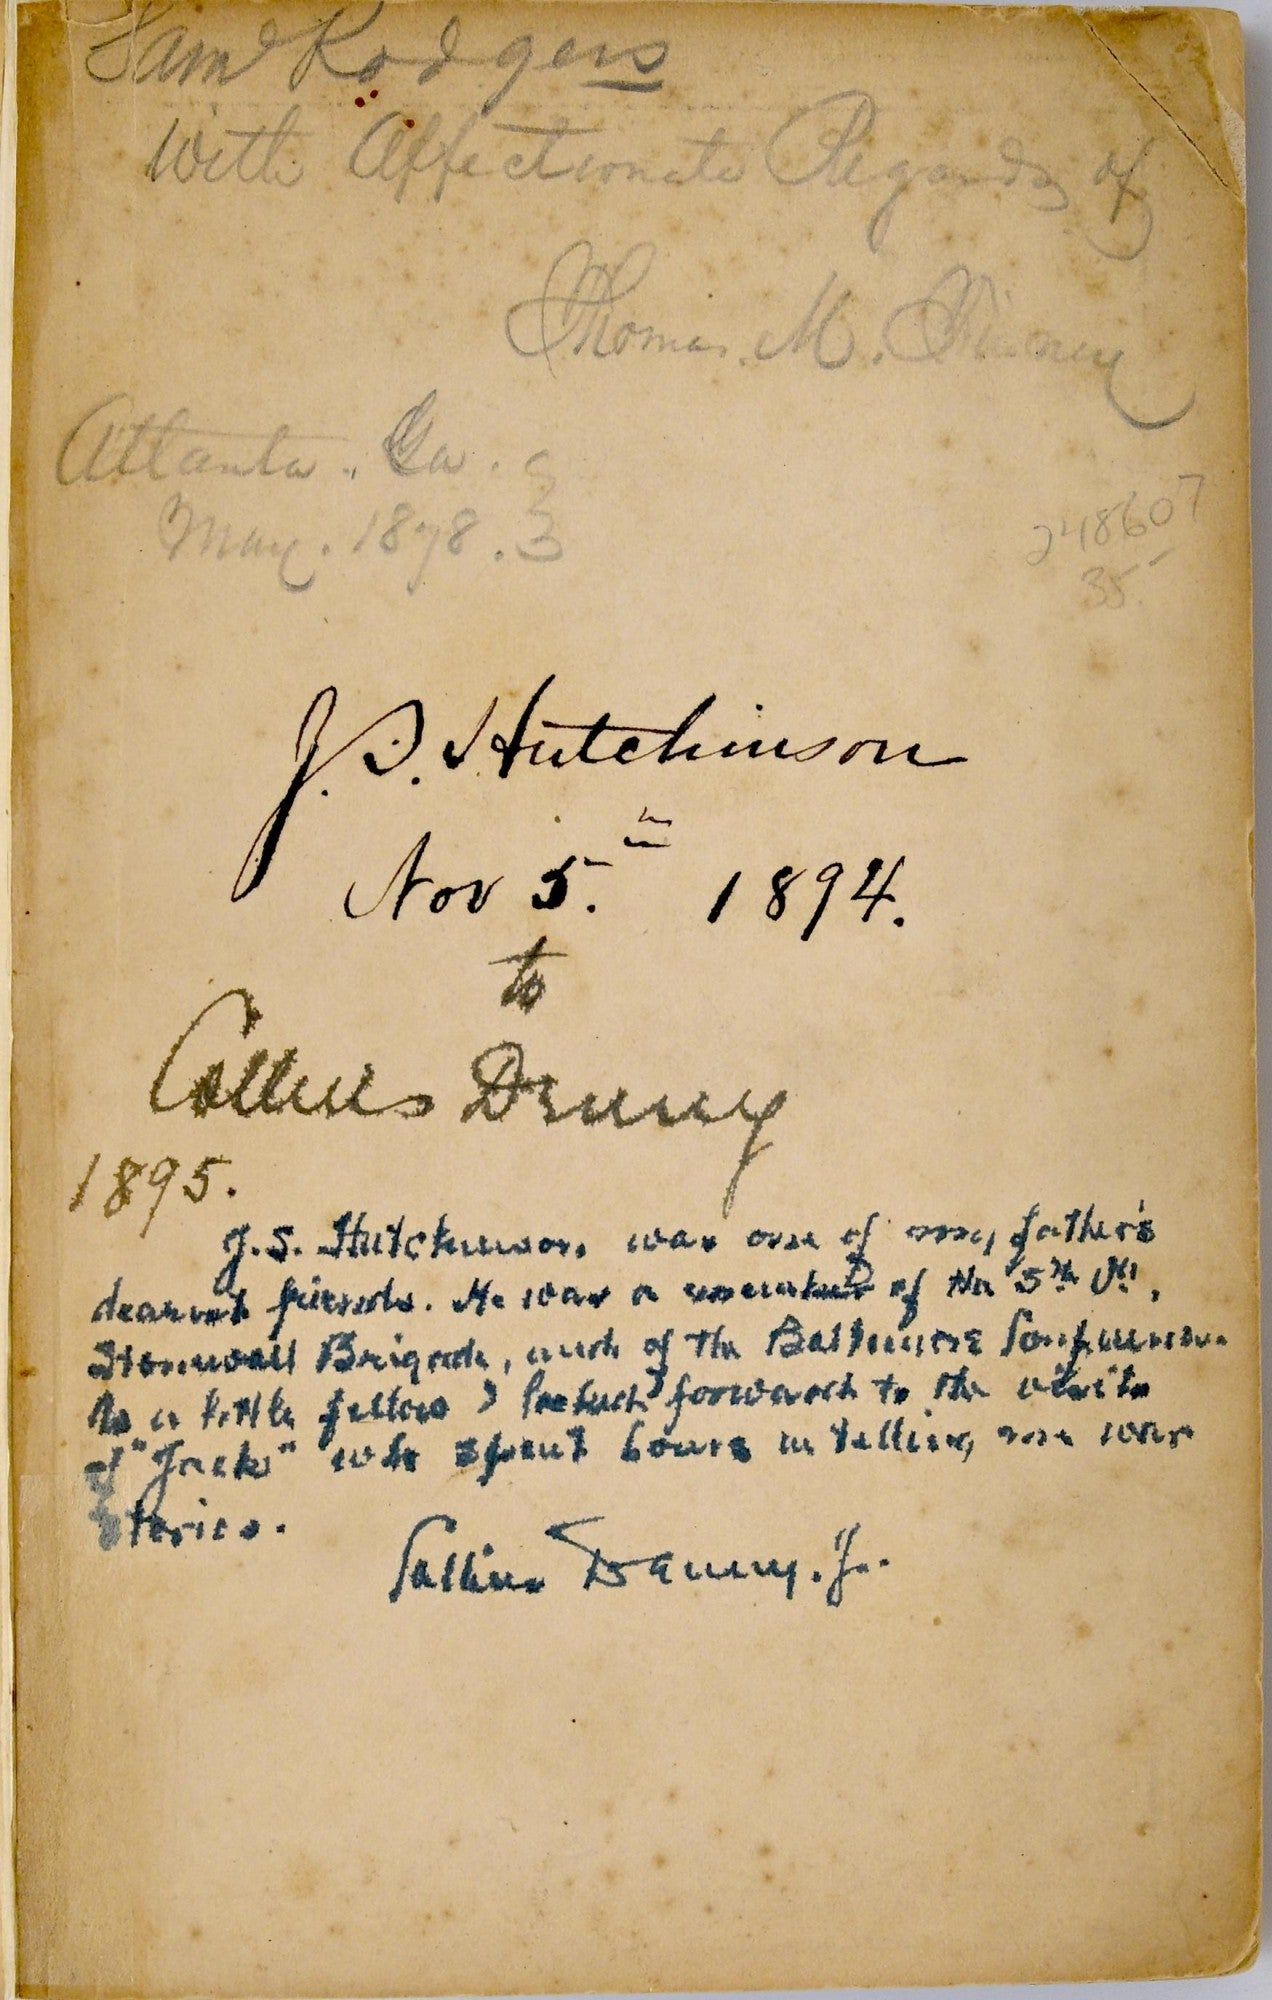 Sam Rodgers
With Affectionate Regards of
Thomas. M.
Atlanta. Ga.
May. 1878.
248607
35
J.S. Hutchinson
Nov 5.th 1894.
to
Collins Denny
1895.
J.S. Hutchinson, was one of my father's
dearest friends. He was a member of the 5th Va.
Stonewall Brigade, and of the Baltimore Conference.
As a little fellow I looked forward to the visits
of "Jack" who spent hours in telling me war
stories.
Collins Denny. Jr.